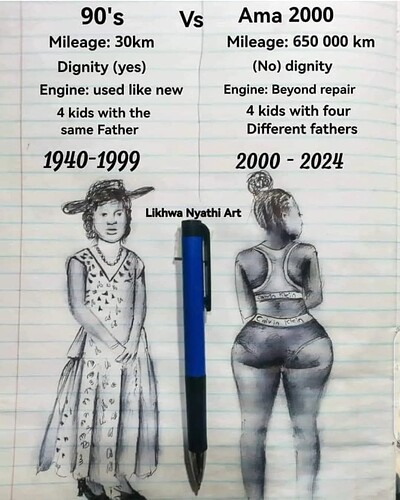 90's Vs Ama 2000
Mileage: 30km
Mileage: 650 000 km
Dignity (yes)
(No) dignity
Engine: used like new
Engine: Beyond repair
4 kids with the
same Father
4 kids with four
Different fathers
1940-1999
2000 - 2024
Likhwa Nyathi Art
Calvin Klein